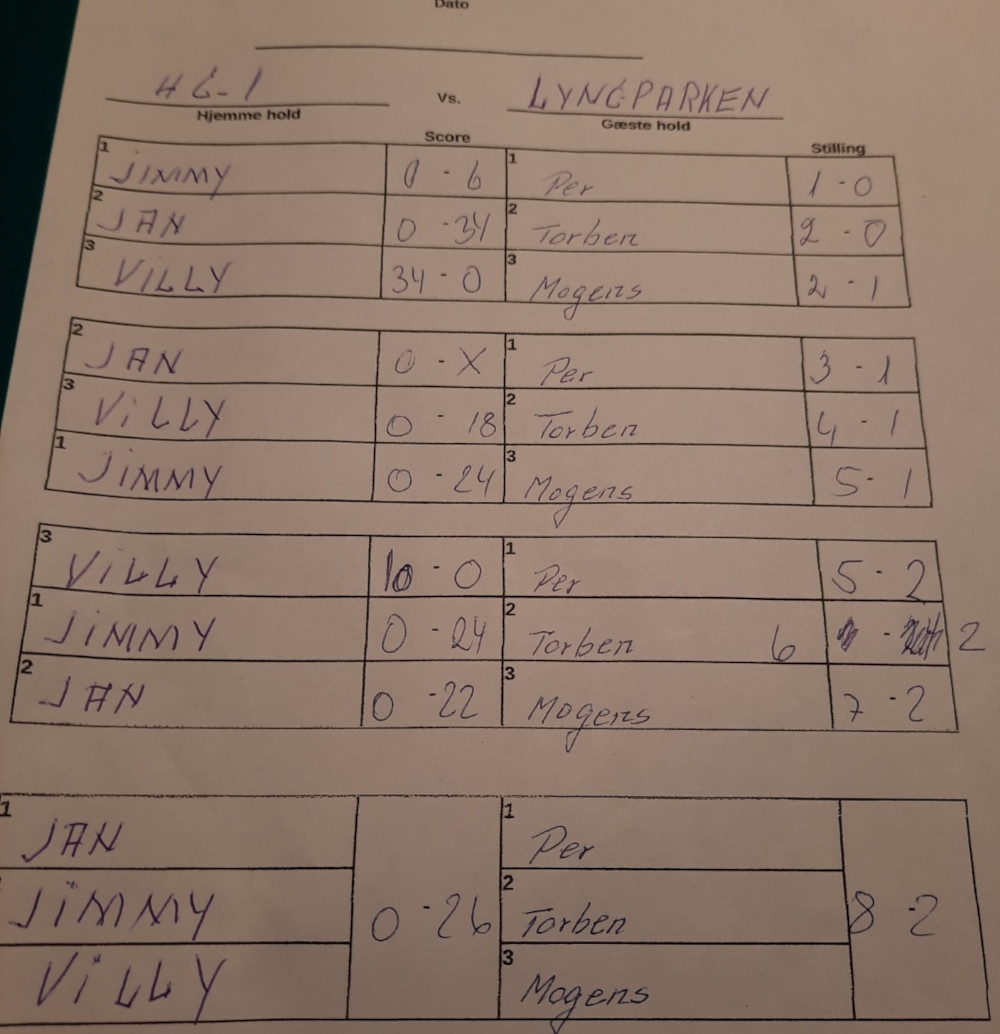 Dato
HG-1 Vs. LYNGPARKEN
Hjemme hold Gæste hold
Score Stilling
1 JIMMY 0 - 6 1 Per 1 - 0
2 JAN 0 - 34 2 Torben 2 - 0
3 VILLY 34 - 0 3 Mogens 2 - 1
2 JAN 0 - X 1 Per 3 - 1
3 VILLY 0 - 18 2 Torben 4 - 1
1 JIMMY 0 - 24 3 Mogens 5 - 1
3 VILLY 10 - 0 1 Per 5 - 2
1 JIMMY 0 - 24 2 Torben 6 - 2
2 JAN 0 - 22 3 Mogens 7 - 2
1 JAN 1 Per
JIMMY 0 - 26 2 Torben 8 - 2
VILLY 3 Mogens